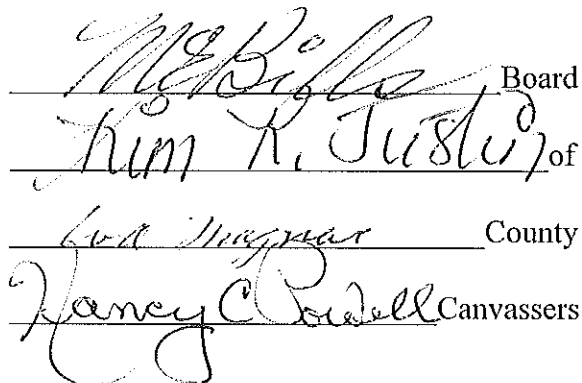 Board
Kim K. Justin of
County
Nancy C Powell Canvassers